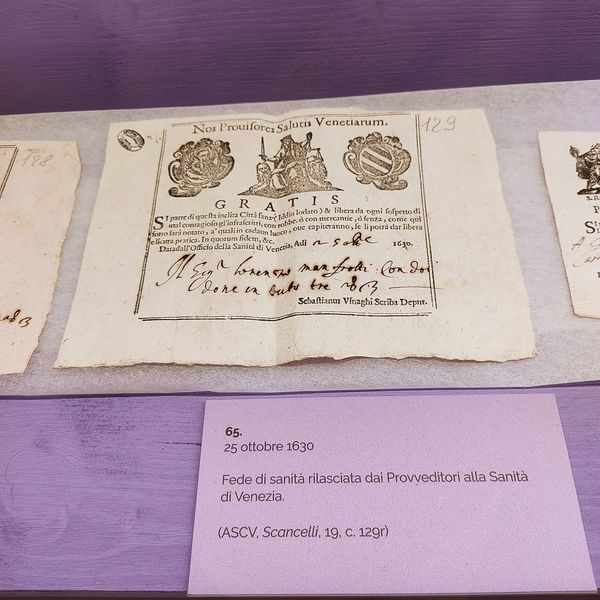 Nos Prouisores Salutis Venetiarum.
129
128
GRATIS
SI parte di questa inclita Città sana (Iddio lodato) & libera da ogni sospetto di
mal contagioso gl'infrascritti, con robbe, ò con mercantie, ò senza, come qui
sotto sarà notato, a' quali in cadaun luoco, oue capiteranno, se li potrà dar libera
e sicura pratica. In quorum fidem, &c.
Data dall'Officio della Sanità di Venetia, Adi 25 1630.
Il Sigr lorenzo manfrotti con doi
done in tuto tre
Sebastianus Vsnaghi Scriba Deput.
65.
25 ottobre 1630
Fede di sanità rilasciata dai Provveditori alla Sanità
di Venezia.
(ASCV, Scancelli, 19, c. 129r)